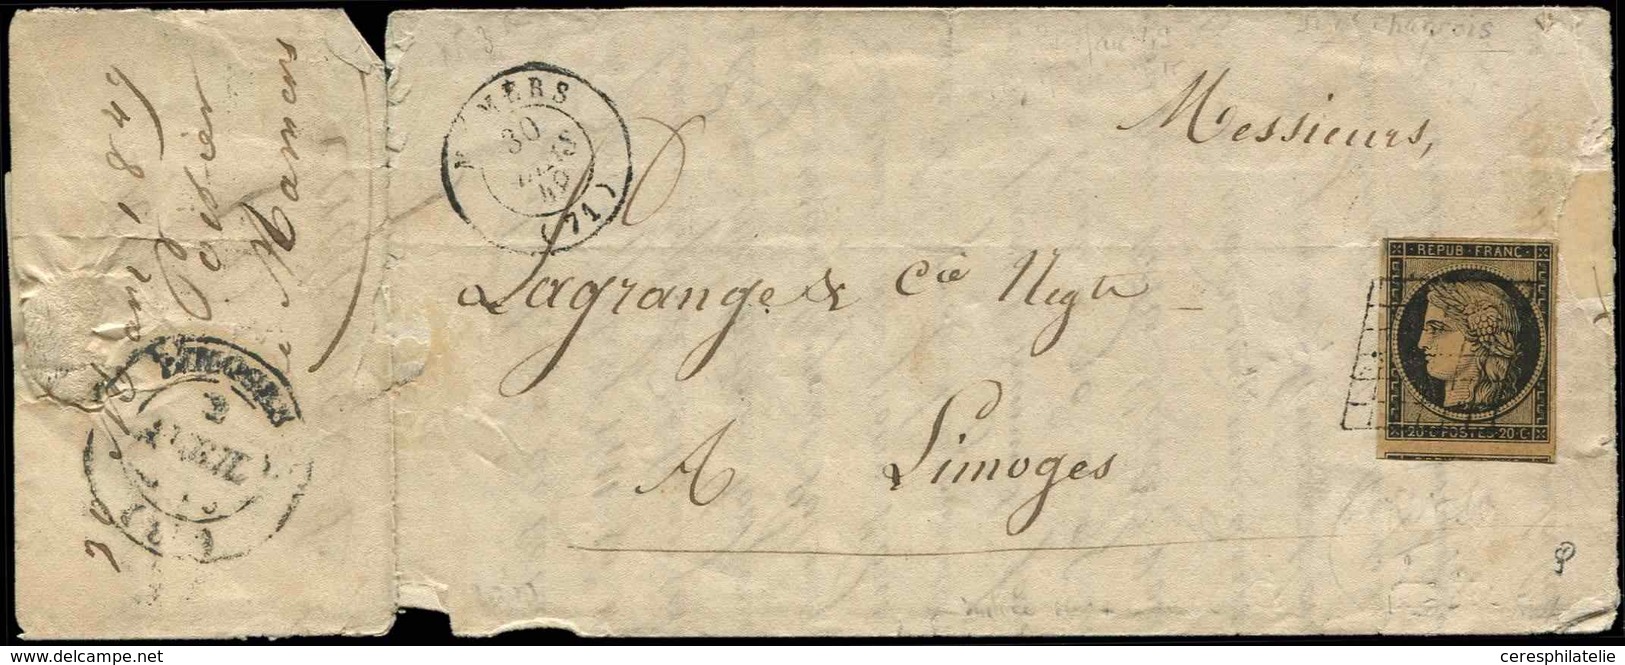 30 Mars 1849
Posier
Mamers
LIMOGES
AVRIL
MAMERS
30
MARS
49
(71)
Messieurs,
Lagrange & Cie Negts
A Limoges
REPUB FRANC
20 C POSTES 20 C
www.delcampe.net
ceresphilatelie